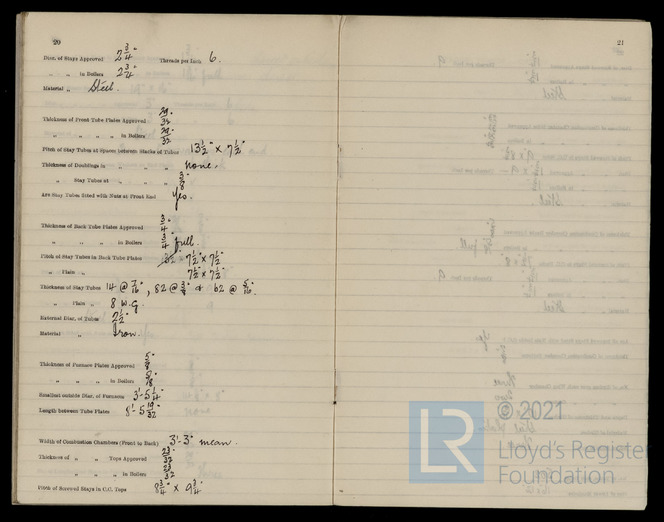 20
Diam. of Stays Approved 2 3/4" Threads per Inch 6.
„ „ in Boilers 2 3/4"
Material „ Steel.
Thickness of Front Tube Plates Approved 29/32"
„ „ „ „ in Boilers 29/32"
Pitch of Stay Tubes at Spaces between Stacks of Tubes 13 1/2" × 7 1/2"
Thickness of Doublings in „ „ none.
„ Stay Tubes at „ „ 3/8"
Are Stay Tubes fitted with Nuts at Front End Yes.
Thickness of Back Tube Plates Approved 3/4"
„ „ „ „ in Boilers 3/4" full.
Pitch of Stay Tubes in Back Tube Plates 7 1/2" × 7 1/2"
„ Plain „ 7 1/2" × 7 1/2"
Thickness of Stay Tubes 14 @ 7/16", 82 @ 3/8" & 62 @ 5/16".
„ Plain „ 8 W.G.
External Diar. of Tubes 2 1/2"
Material „ Iron.
Thickness of Furnace Plates Approved 5/8"
„ „ „ in Boilers 5/8"
Smallest outside Diar. of Furnaces 3'-5 1/4"
Length between Tube Plates 8'-5 19/32"
Width of Combustion Chambers (Front to Back) 3'-3" mean.
Thickness of „ „ Tops Approved 23/32"
„ „ „ „ in Boilers 23/32"
Pitch of Screwed Stays in C.C. Tops 8 3/4" × 9 3/4"
21
© 2021
LR
Lloyd's Register
Foundation